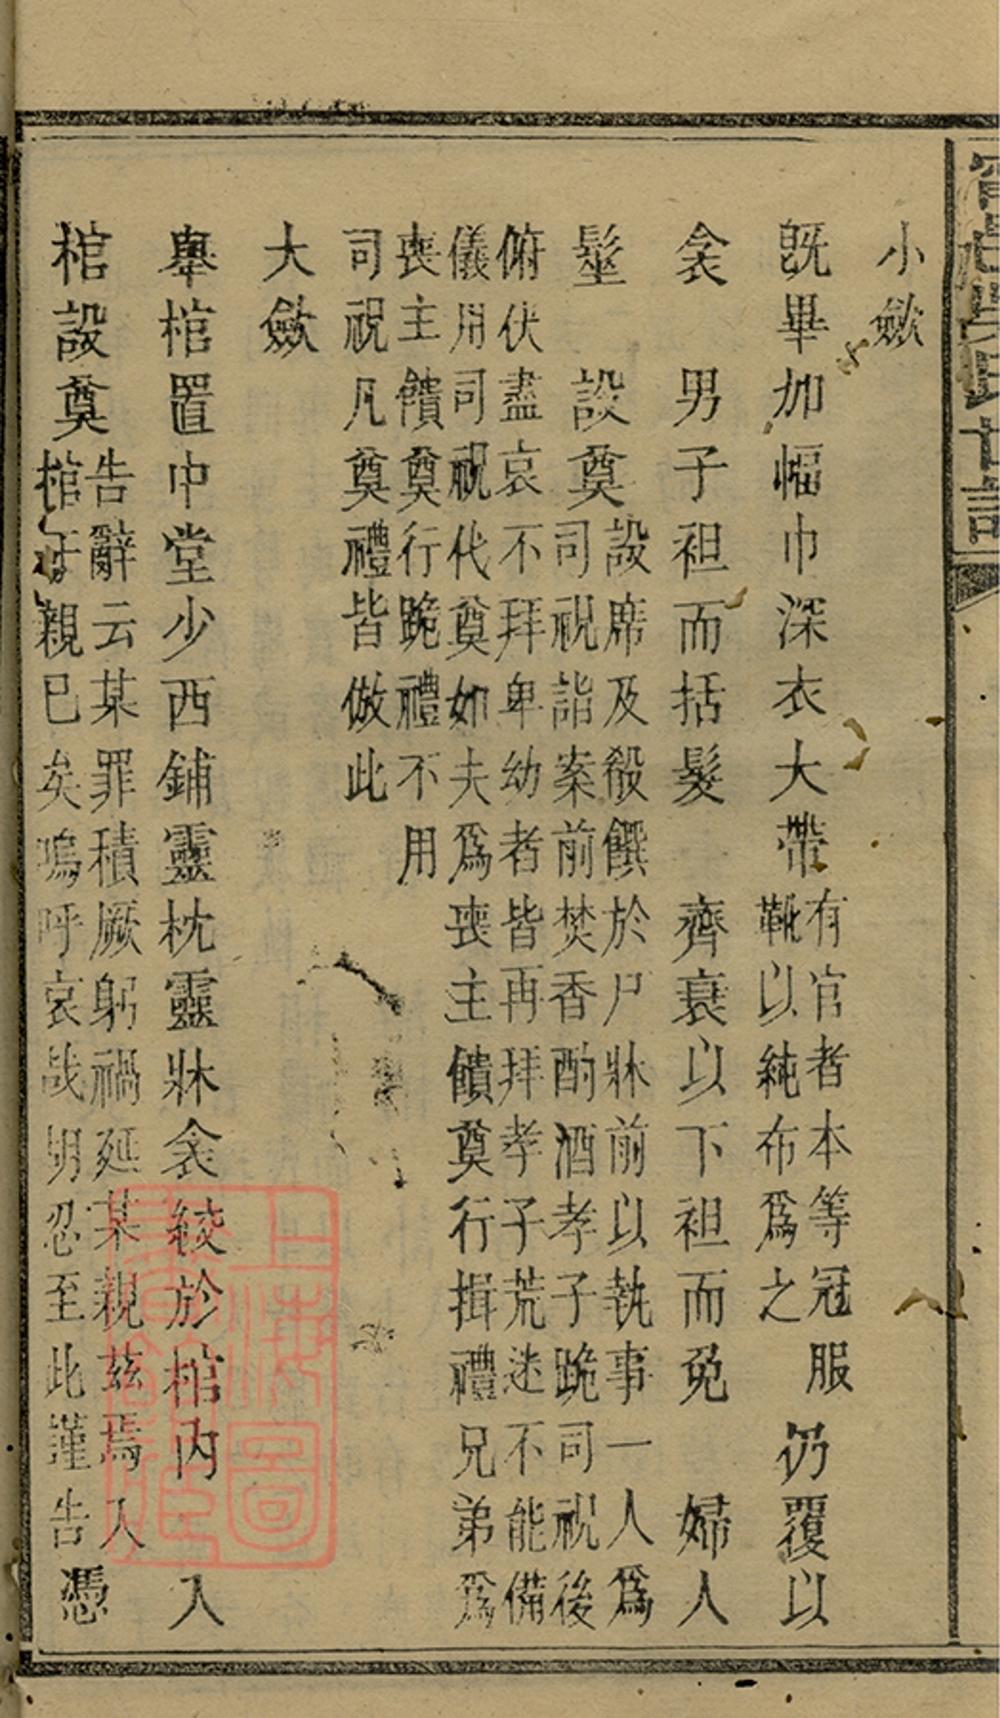 小斂
旣畢加幅巾深衣大帶
有官者本等冠服
靴以純布爲之
仍覆以
衾　男子袒而括髮　齊衰以下袒而免　婦人
髽　設奠
設席及殽饌於尸牀前以執事一人爲
司祝詣案前焚香酌酒孝子跪司祝後
俯伏盡哀不拜卑幼者皆再拜孝子荒迷不能備
儀用司祝代奠如夫爲喪主饋奠行揖禮兄弟爲
喪主饋奠行跪禮不用
司祝凡奠禮皆倣此
大斂
舉棺置中堂少西鋪靈枕靈牀衾綾於棺內　入
棺設奠
告辭云某罪積厥躬禍延某親茲焉入
棺 親已矣嗚呼哀哉胡忍至此謹告
憑
上海圖
書館藏